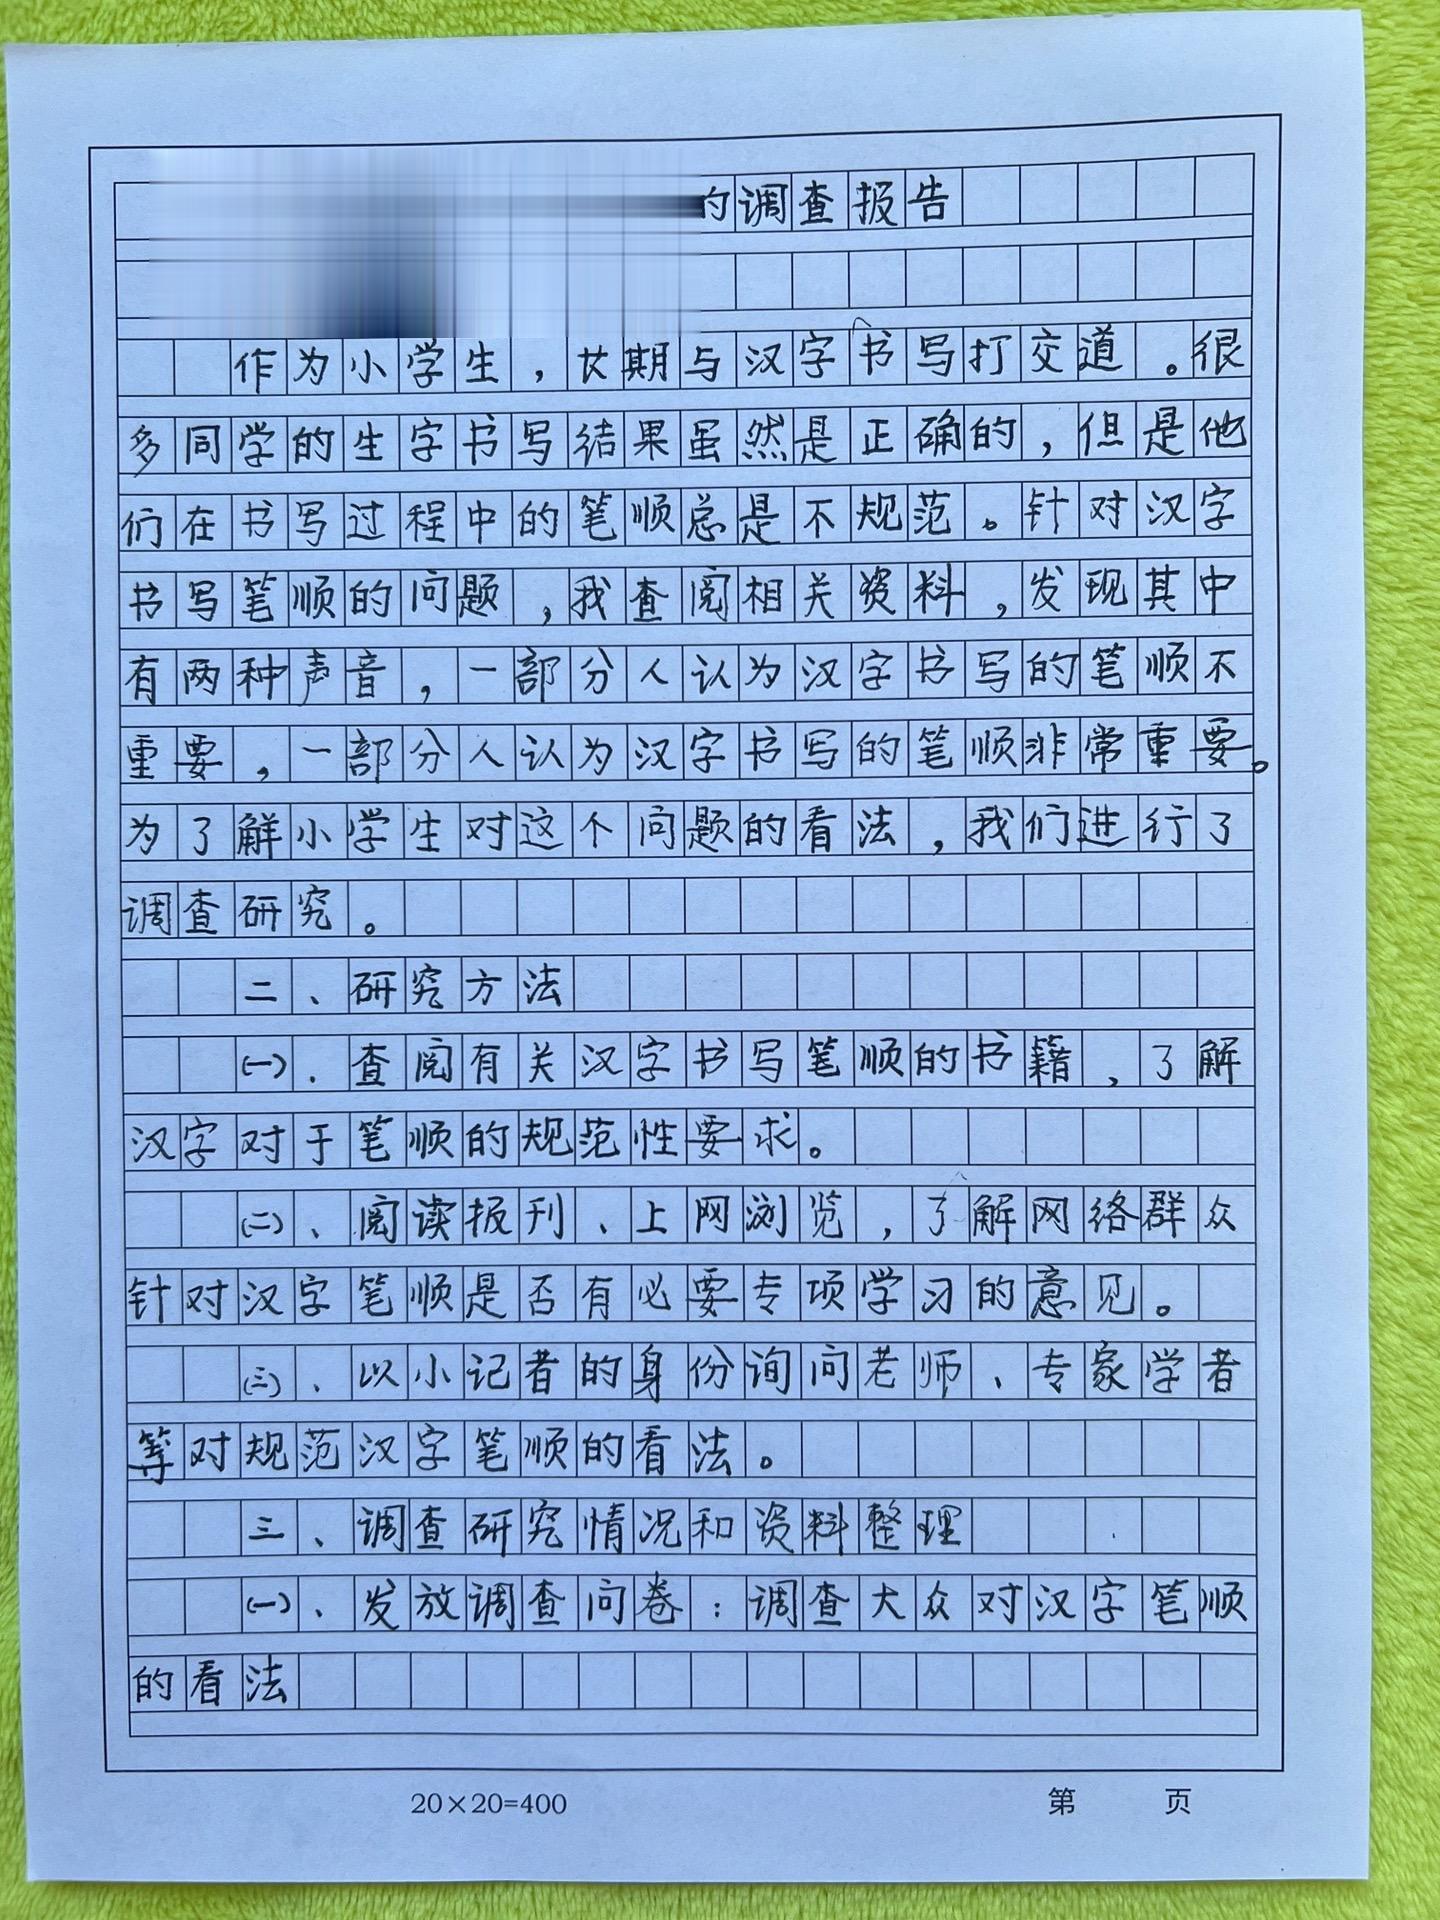 的调查报告
作为小学生，长期与汉字书写打交道。很
多同学的生字书写结果虽然是正确的，但是他
们在书写过程中的笔顺总是不规范。针对汉字
书写笔顺的问题，我查阅相关资料，发现其中
有两种声音，一部分人认为汉字书写的笔顺不
重要，一部分人认为汉字书写的笔顺非常重要。
为了解小学生对这个问题的看法，我们进行了
调查研究。
二、研究方法
（一）．查阅有关汉字书写笔顺的书籍，了解
汉字对于笔顺的规范性要求。
（二）、阅读报刊、上网浏览，了解网络群众
针对汉字笔顺是否有必要专项学习的意见。
（三）、以小记者的身份询问老师、专家学者
等对规范汉字笔顺的看法。
三、调查研究情况和资料整理
（一）、发放调查问卷：调查大众对汉字笔顺
的看法
20×20=400 第 页